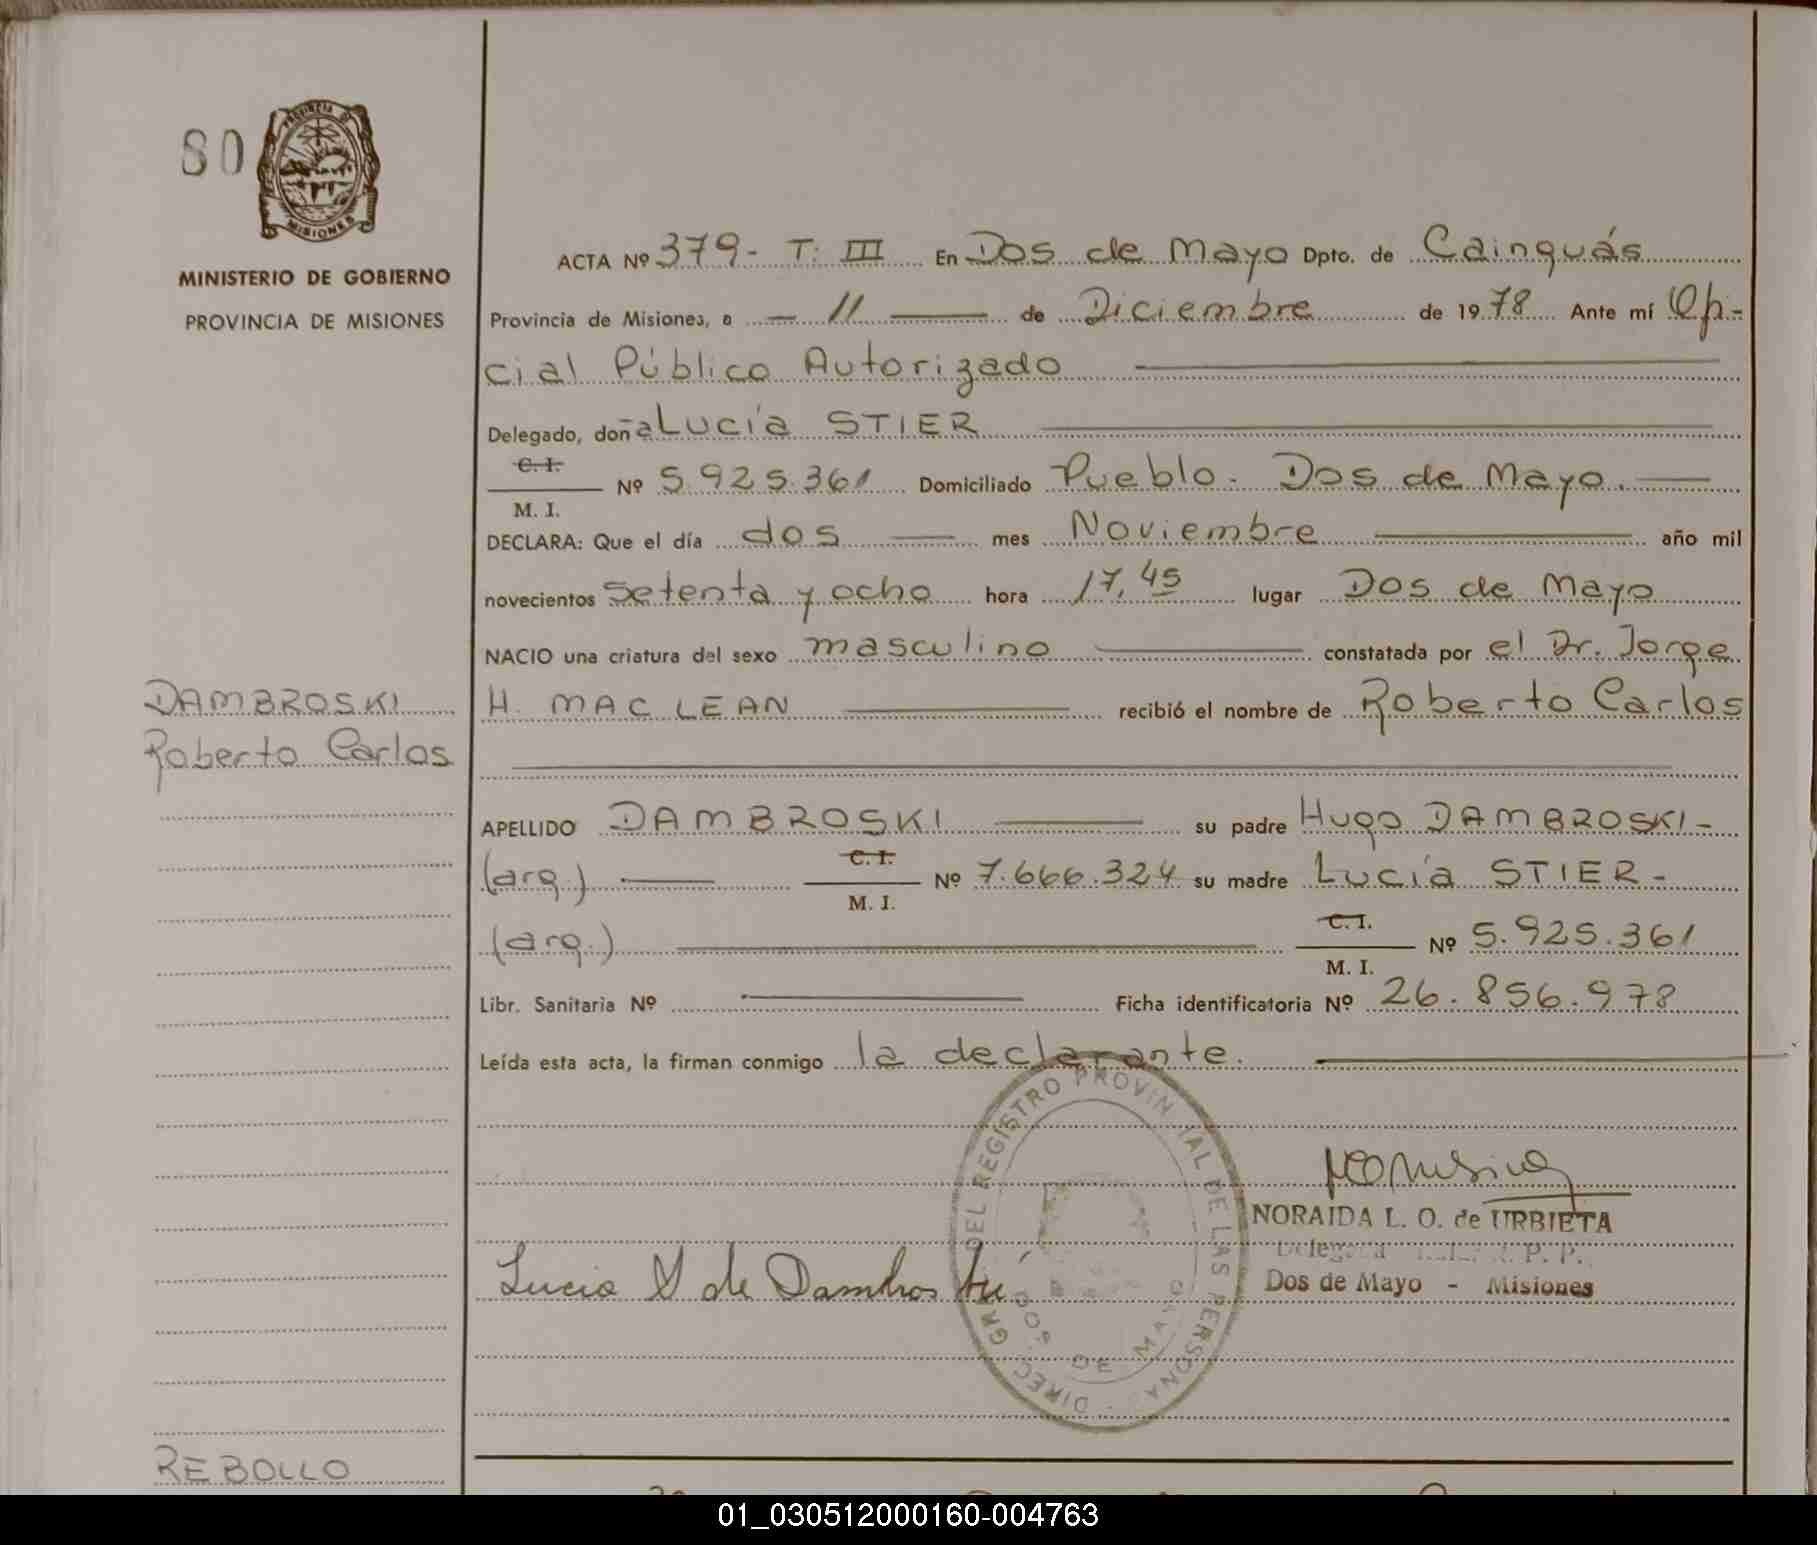 80
PROVINCIA DE
MISIONES
MINISTERIO DE GOBIERNO
PROVINCIA DE MISIONES
DAMBROSKI
Roberto Carlos
REBOLLO
ACTA Nº 379- T. III En Dos de Mayo Dpto. de Cainguás
Provincia de Misiones, a - 11 - de Diciembre de 1978 Ante mí Ofi-
cial Público Autorizado
Delegado, doña Lucía STIER
C. I.
M. I. Nº 5.925.361 Domiciliado Pueblo - Dos de Mayo.
DECLARA: Que el día dos mes Noviembre año mil
novecientos setenta y ocho hora 17,45 lugar Dos de Mayo
NACIO una criatura del sexo masculino constatada por el Dr. Jorge
H. MAC LEAN recibió el nombre de Roberto Carlos
APELLIDO DAMBROSKI su padre Hugo DAMBROSKI-
(arg.) C. I. M. I. Nº 7.666.324 su madre Lucía STIER-
(arg.) C. I. M. I. Nº 5.925.361
Libr. Sanitaria Nº Ficha identificatoria Nº 26.856.978
Leída esta acta, la firman conmigo la declarante.
DEL REGISTRO PROVIN IAL DE LAS PERSONA
DIREC GR
DOS DE MAYO
NORAIDA L. O. de URBIETA
P. P.
Dos de Mayo - Misiones
Lucia S de Dambroski
01_030512000160-004763